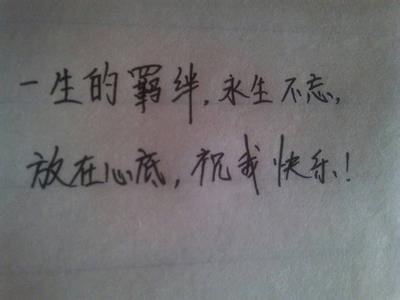 一生的羁绊,永生不忘,
放在心底,祝我快乐!